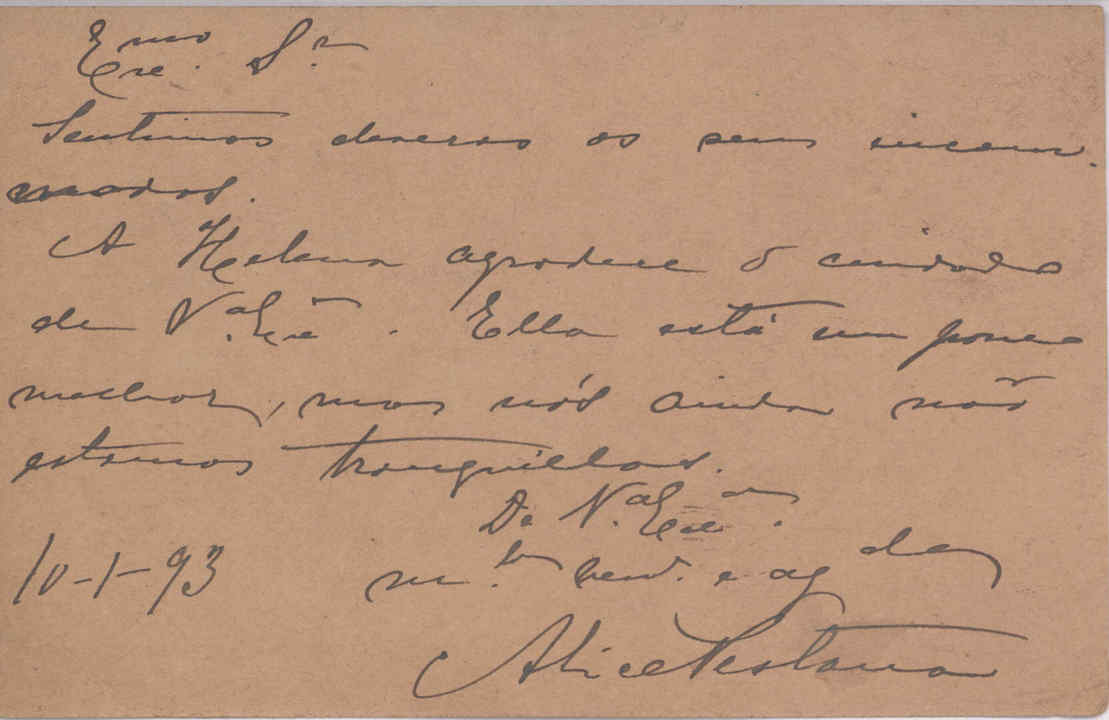 Exmo. Sr.
Sentimos deveras os seus incom-
modos.
A Helena agradece o cuidado
de V.ª Ex.ª. Ella está um pouco
melhor, mas nós ainda não
estamos tranquillas.
De V.ª Ex.ª
m.to ven. e ag.da
10-1-93
Alice Pestana